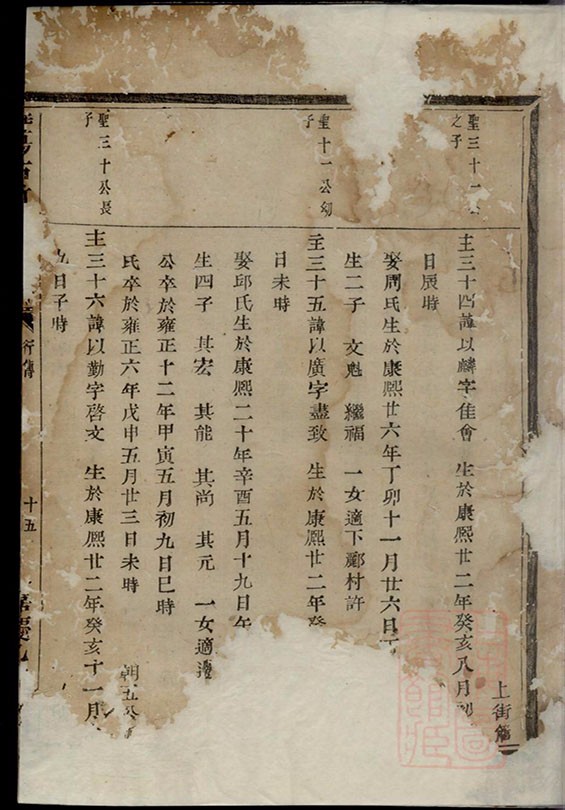 聖三十一
之子
主三十四諱以麟字佳會 生於康熙廿二年癸亥八月初
上街
日辰時
娶周氏生於康熙廿六年丁卯十一月廿六日
生二子 文魁 繼福 一女適下鄺村許
聖十一公幼
子
主三十五諱以廣字盡致 生於康熙廿二年癸
日未時
娶邱氏生於康熙二十年辛酉五月十九日午
生四子 其宏 其能 其尚 其元 一女適
公卒於雍正十二年甲寅五月初九日巳時
氏卒於雍正六年戊申五月廿三日未時
聖三十公長
子
主三十六諱以勤字啓文 生於康熙廿二年癸亥十一月
九日子時
行傳
十五